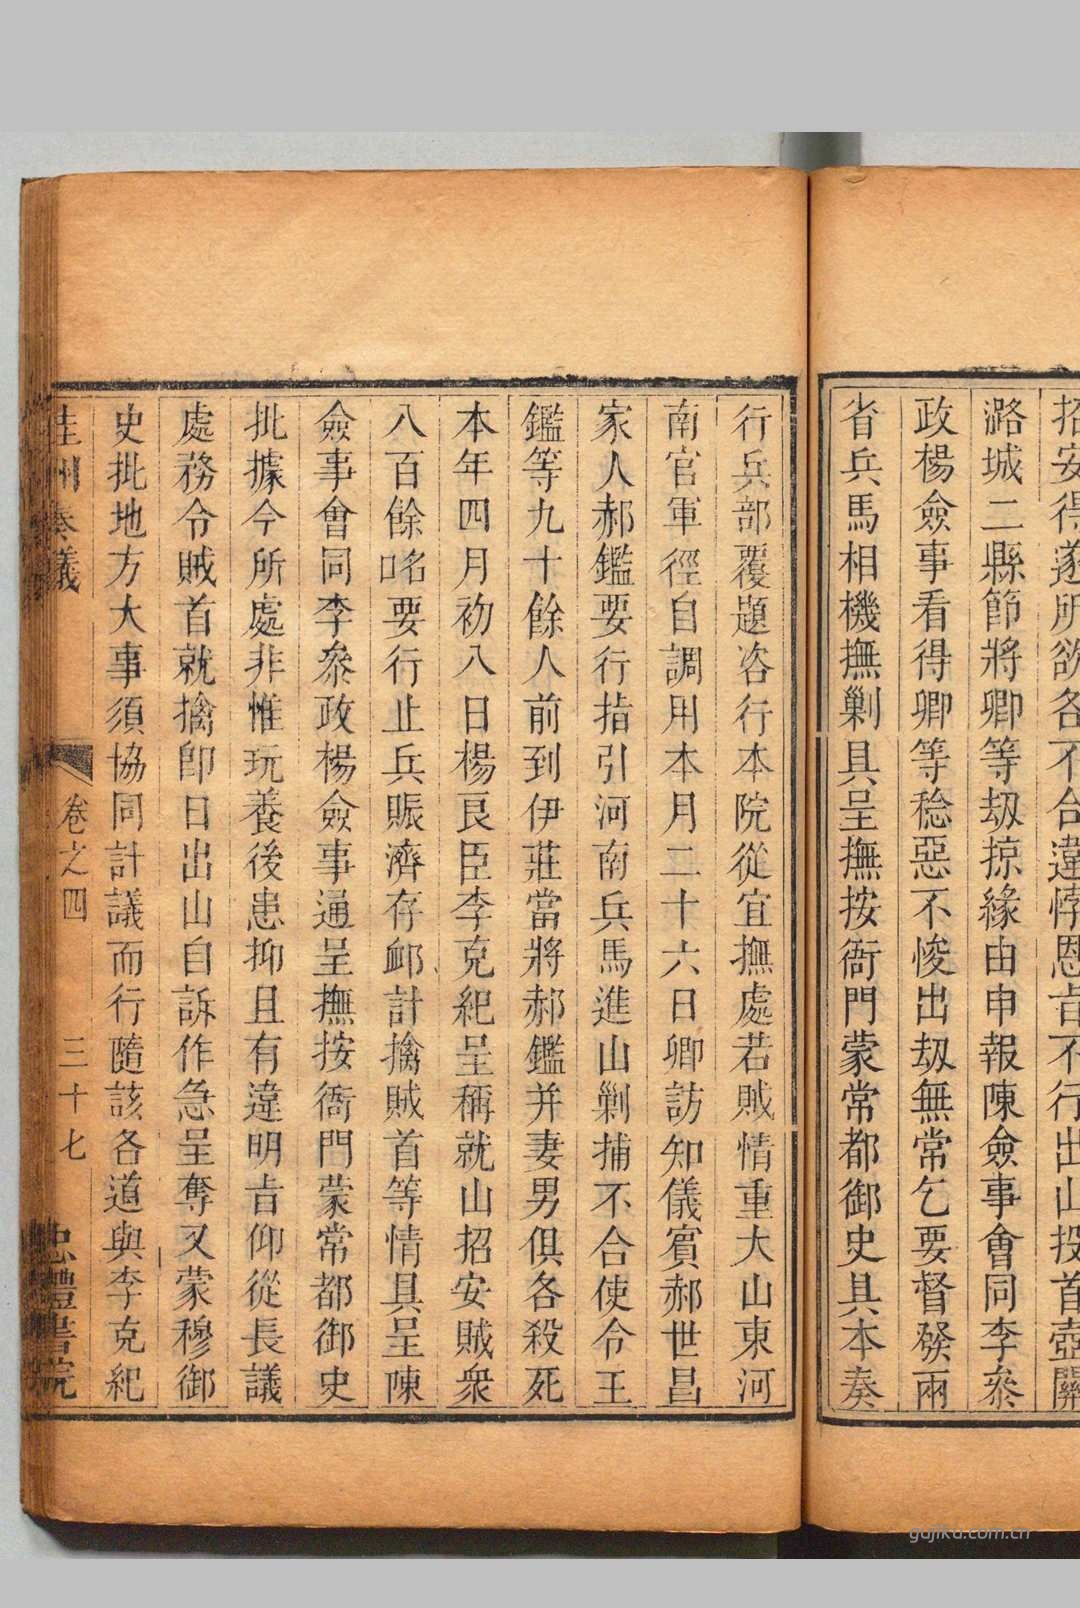 招安得遂所欲各不合違悖恩旨不行出山投首壺關
潞城二縣節將卿等刼掠緣由申報陳僉事會同李叅
政楊僉事看得卿等稔惡不悛出刼無常乞要督發兩
省兵馬相機撫剿具呈撫按衙門蒙常都御史具本奏
行兵部覆題咨行本院從宜撫處若賊情重大山東河
南官軍徑自調用本月二十六日卿訪知儀賓郝世昌
家人郝鑑要行指引河南兵馬進山剿捕不合使令王
鑑等九十餘人前到伊莊當將郝鑑并妻男俱各殺死
本年四月初八日楊良臣李克紀呈稱就山招安賊衆
八百餘名要行止兵賑濟存卹計擒賊首等情具呈陳
僉事會同李叅政楊僉事通呈撫按衙門蒙常都御史
批據今所處非惟玩養後患抑且有違明旨仰從長議
處務令賊首就擒卽日出山自訴作急呈奪又蒙穆御
史批地方大事須協同計議而行隨該各道與李克紀
桂州奏議 卷之四 三十七 忠禮書院
gujiku.com.cn